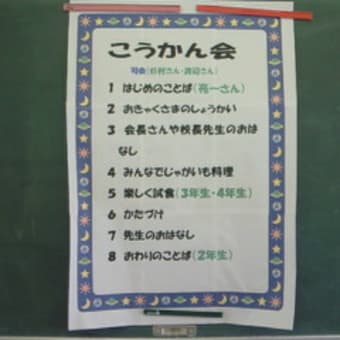 こうかん会
司会(杉村さん・渡辺さん)
1 はじめのことば(亮一さん)
2 おきゃくさまのしょうかい
3 会長さんや校長先生のおは
なし
4 みんなでじゃがいも料理
5 楽しく試食(3年生・4年生)
6 かたづけ
7 先生のおはなし
8 おわりのことば(2年生)